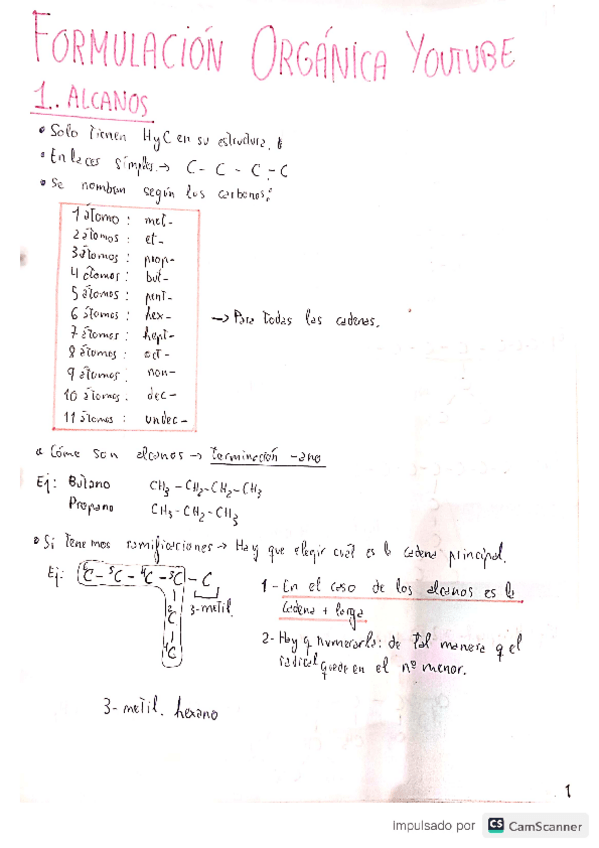 FORMULACIÓN ORGÁNICA YOUTUBE
1. ALCANOS
• Solo tienen H y C en su estructura.
• Enlaces simples → C - C - C - C
• Se nombran según los carbonos:
1 átomo : met-
2 átomos : et-
3 átomos : prop-
4 átomos : but-
5 átomos : pent-
6 átomos : hex-
7 átomos : hept-
8 átomos : oct-
9 átomos : non-
10 átomos : dec-
11 átomos : undec-
→ Para todas las cadenas.
• Cómo son alcanos → terminación -ano
Ej: Butano CH3 - CH2 - CH2 - CH3
Propano CH3 - CH2 - CH3
• Si tenemos ramificaciones → Hay que elegir cuál es la cadena principal.
Ej: 6C - 5C - 4C - 3C - C
3-metil.
2C
1C
1 - En el caso de los alcanos es la
cadena + larga
2- Hay q numerarla: de tal manera q el
radical quede en el nº menor.
3- metil. hexano
1
Impulsado por CS CamScanner